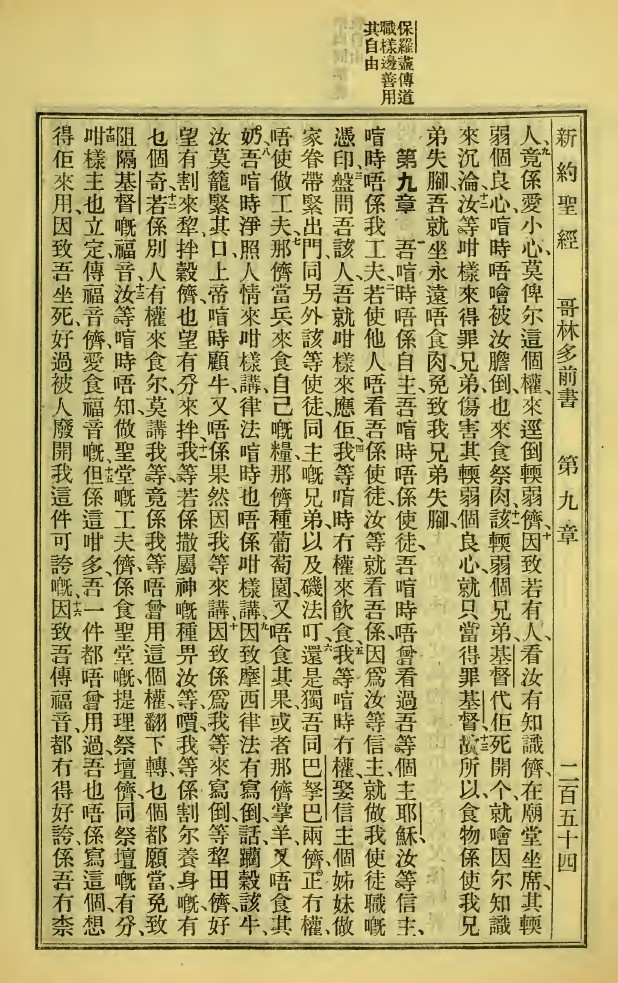 保羅盡傳道
職樣邊善用
其自由
新約聖經 哥林多前書 第九章 二百五十四
人、九竟係愛小心莫俾尔這個權來逕倒輭弱儕、十因致若有人、看汝有知識儕、在廟堂坐席、其輭
弱個良心、喧時唔噲被汝膽倒、也來食祭肉、十一該輭弱個兄弟基督代佢死開个、就噲因尔知識
來沉淪、十二汝等咁樣來得罪兄弟、傷害其輭弱個良心、就只當得罪基督、十三故所以食物係使我兄
弟失腳、吾就坐永遠唔食肉、免致我兄弟失腳、
第九章 一吾喧時唔係自主、吾喧時唔係使徒、吾喧時唔曾看過吾等個主耶穌、汝等信主、
喧時唔係我工夫、二若使他人唔看吾係使徒、汝等就看吾係、因爲汝等信主、就做我使徒職嘅
憑印、三盤問吾該人、吾就咁樣來應佢、四我等喧時冇權來飲食、五我等喧時冇權、娶信主個姊妹做
家眷、帶緊出門、同另外該等使徒、同主嘅兄弟、以及磯法叮、六還是獨吾同巴拏巴兩儕、正冇權、
唔使做工夫、七那儕當兵來食自己嘅糧、那儕種葡萄園、又唔食其果、或者那儕掌羊、又唔食其
奶、八吾喧時淨照人情來咁樣講、律法喧時也唔係咁樣講、九因致摩西律法有寫倒、話、躪穀該牛、
汝莫籠緊其口、上帝喧時顧牛、十又唔係果然因我等來講、因致係爲我等來寫倒、等犂田儕、好
望有割來犂、拌穀儕、也望有分來拌、十一我等若係撒屬神嘅種畀汝等、嘪我等係割尔養身嘅有
乜個奇、十二若係別人有權來食尔、莫講我等、竟係我等唔曾用這個權、翻下轉乜個都願當、免致有
阻隔基督嘅福音、十三汝等喧時唔知、做聖堂嘅工夫儕、係食聖堂嘅、提理祭壇儕、同祭壇嘅有分、
十四咁樣主也立定、傳福音儕、愛食福音嘅、十五但係這咁多、吾一件都唔曾用過、吾也唔係寫這個、想
得佢來用、因致吾坐死、好過被人廢開我這件可誇嘅、十六因致吾傳福音、都冇得好誇、係吾冇柰